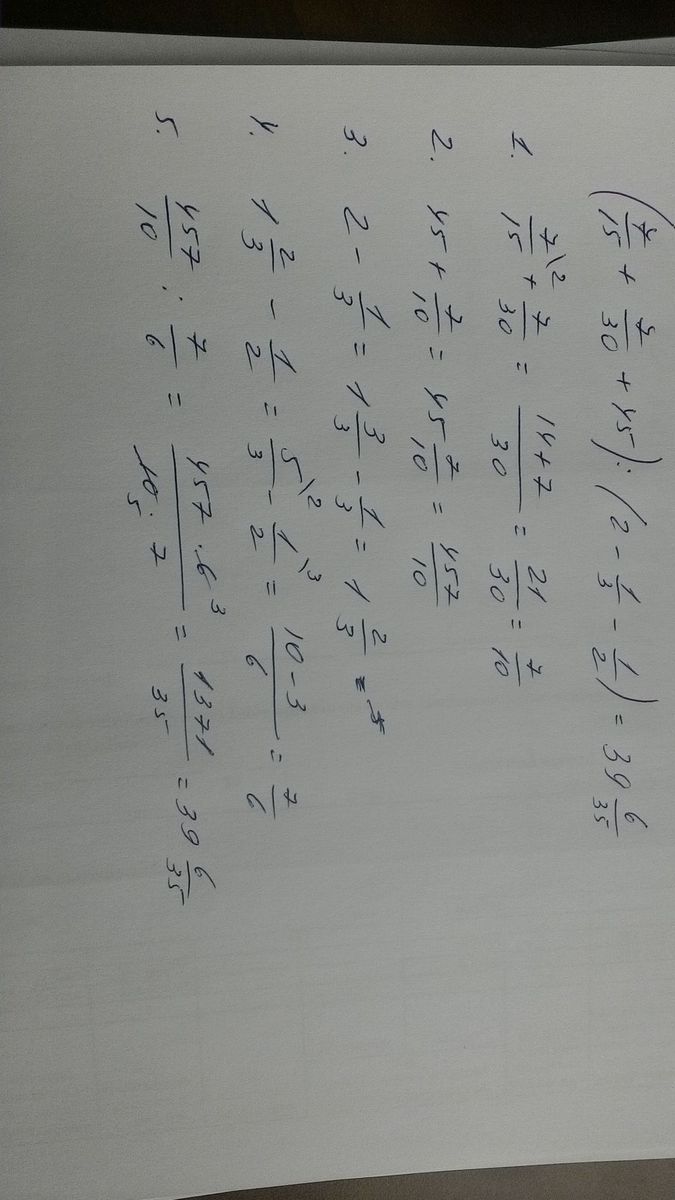 (7/15 + 7/30 + 45) : (2 - 1/3 - 1/2) = 39 6/35
1. 7\2/15 + 7/30 = 14+7/30 = 21/30 = 7/10
2. 45 + 7/10 = 45 7/10 = 457/10
3. 2 - 1/3 = 1 3/3 - 1/3 = 1 2/3
4. 1 2/3 - 1/2 = 5\2/3 - 1\3/2 = 10-3/6 = 7/6
5. 457/10 : 7/6 = 457 · 6 3/10 5 · 7 = 1371/35 = 39 6/35